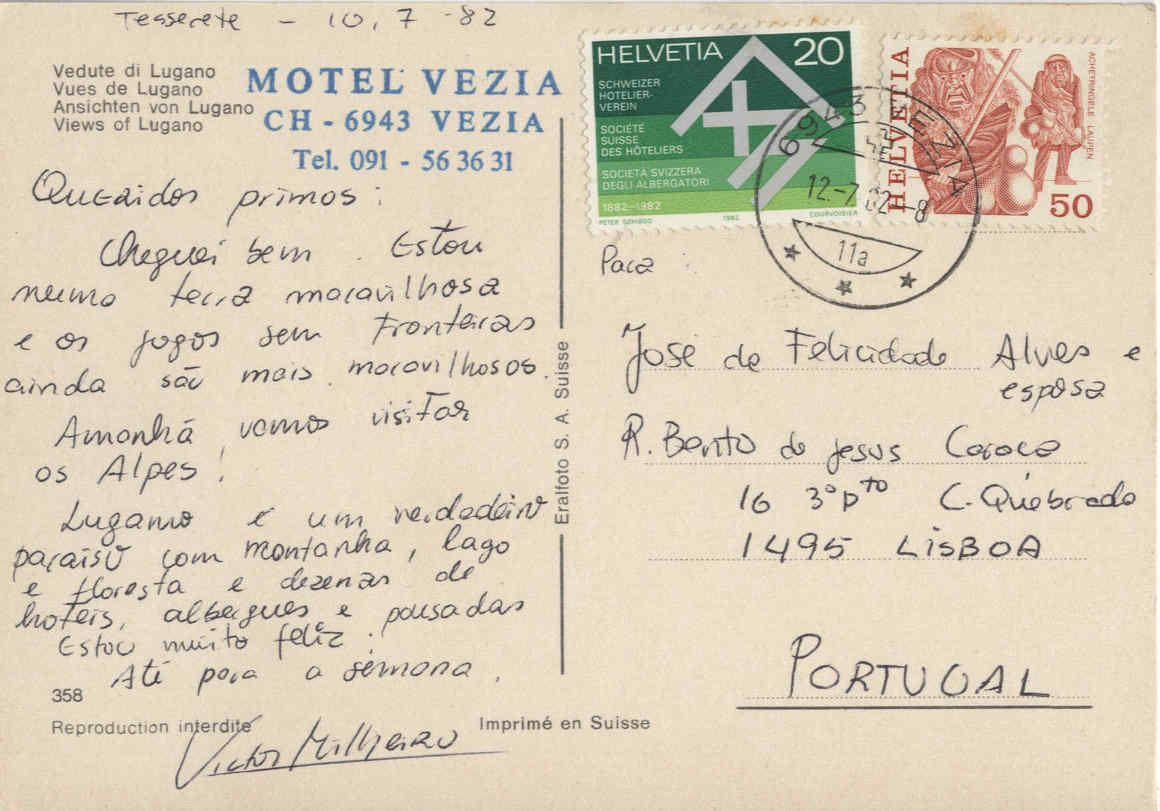 Tesserete - 10, 7 - 82
Vedute di Lugano
Vues de Lugano
Ansichten von Lugano
Views of Lugano
MOTEL VEZIA
CH - 6943 VEZIA
Tel. 091 - 56 36 31
Queridos primos:
Cheguei bem. Estou
numa terra maravilhosa
e os jogos sem Fronteiras
ainda são mais maravilhosos.
Amanhã vamos visitar
os Alpes!
Lugano é um verdadeiro
paraíso com montanha, lago
e floresta e dezenas de
hoteis, albergues e pousadas
Estou muito feliz.
Até para a semana.
Victor Milheiro
358
Reproduction interdite
Imprimé en Suisse
Eralfoto S. A. Suisse
HELVETIA 20
SCHWEIZER
HOTELIER-
VEREIN
SOCIÉTÉ
SUISSE
DES HÔTELIERS
SOCIETÀ SVIZZERA
DEGLI ALBERGATORI
1882–1982
PETER 1982 COURVOISIER
HELVETIA
ACHETRINGELE LAUPEN
50
6943 VEZIA
12.-7.82-8
11a
Para:
José da Felicidade Alves e
esposa
R. Bento de Jesus Caraça
16 3º Dto C. Quebrada
1495 LISBOA
PORTUGAL